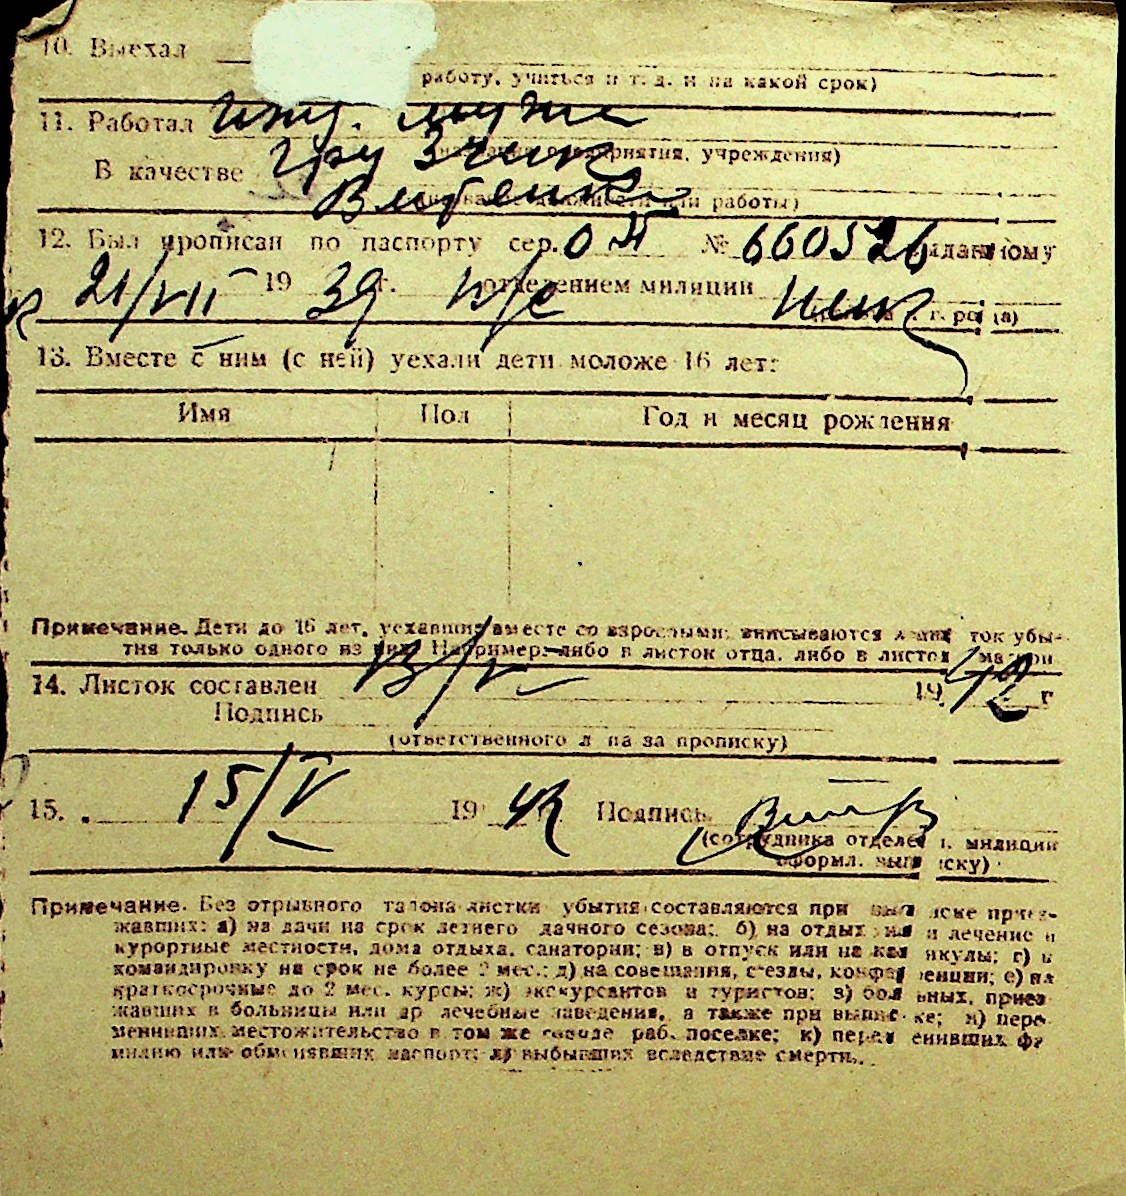 10. Выехал
работу, учиться и т. д. и на какой срок)
11. Работал ижд. мужа
предприятия, учреждения)
В качестве грузчик
или работы)
12. Был прописан по паспорту сер. № 660526 выданному
21/VII 1939 г. отделением милиции
13. Вместе с ним (с ней) уехали дети моложе 16 лет:
Имя Пол Год и месяц рождения
Примечание. Дети до 16 лет, уехавшие вместе со взрослыми, вписываются в листок убы-
тия только одного из них. Например: либо в листок отца, либо в листок матери
14. Листок составлен 13/V 1942 г
Подпись
(ответственного лица за прописку)
15. 15/V 1942 Подпись
(сотрудника отделен. милиции
оформл. выписку)
Примечание. Без отрывного талона листки убытия составляются при выписке приез-
жавших: а) на дачи на срок летнего дачного сезона; б) на отдых и лечение в
курортные местности, дома отдыха, санатории; в) в отпуск или на каникулы; г) в
командировку на срок не более 2 мес.; д) на совещания, съезды, конференции; е) на
краткосрочные до 2 мес. курсы; ж) экскурсантов и туристов; з) больных, приез
жавших в больницы или др лечебные заведения, а также при выписке; и) пере
менивших местожительство в том же городе раб. поселке; к) переменивших фа
милию или обменявших паспорт; л) выбывших вследствие смерти.